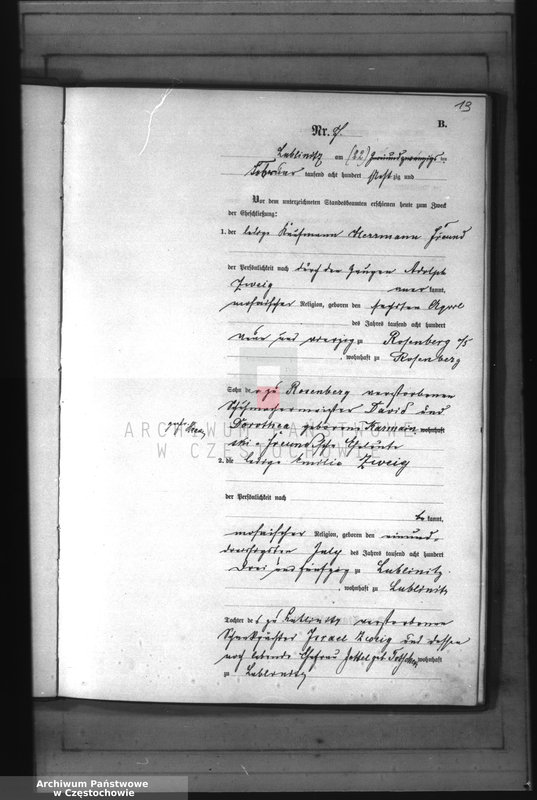 13
B.
Nr. 7.
Lublinitz am (22) Zweiundzwanzigsten
Februar tausend acht hundert siebzig und
Vor dem unterzeichneten Standesbeamten erschienen heute zum Zweck
der Eheschließung:
1. der ledige Kaufmann Herrmann Freund
der Persönlichkeit nach durch den Zeugen Adolph
Zweig anerkannt,
mosaischer Religion, geboren den sechsten April
des Jahres tausend acht hundert
neun und vierzig zu Rosenberg O/S
, wohnhaft zu Rosenberg
Sohn der zu Rosenberg verstorbenen
David und
Dorothea geborene wohnhaft
Freund'sche Eheleute
2. die ledige Emilie Zweig
der Persönlichkeit nach
be kannt,
mosaischer Religion, geboren den einund-
dreißigsten July des Jahres tausend acht hundert
drei und fünfzig zu Lublinitz
, wohnhaft zu Lublinitz
Tochter des zu Lublinitz verstorbenen
Israel Zweig und dessen
noch lebende Ehefrau geb. wohnhaft
zu Lublinitz
ARCHIWUM PAŃSTWOWE
W CZĘSTOCHOWIE
Archiwum Państwowe
w Częstochowie